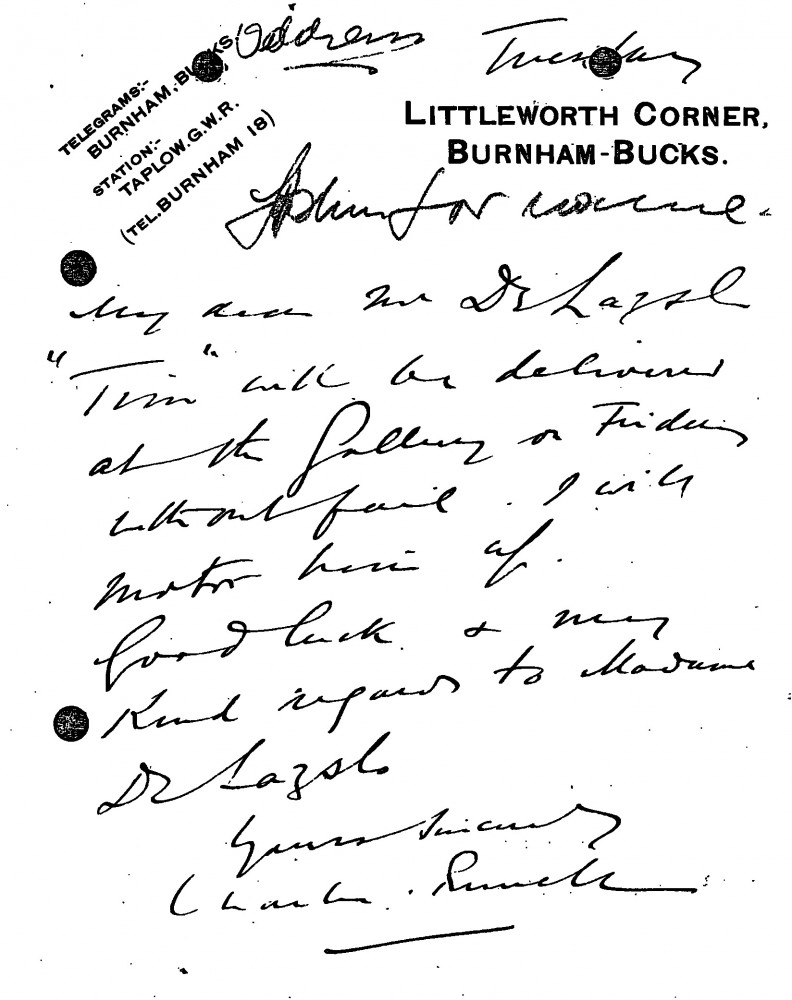 Address
Tuesday
TELEGRAMS:-
BURNHAM, BUCKS.
STATION:-
TAPLOW. G.W.R.
(TEL. BURNHAM 18)
LITTLEWORTH CORNER,
BURNHAM-BUCKS.
for
My dear Mr De Laszlo
"Tim" will be delivered
at the Gallery on Friday
without fail. I will
motor him up.
Good luck & my
Kind regards to Madame
De Laszlo
Yours sincerely
Charles Russell